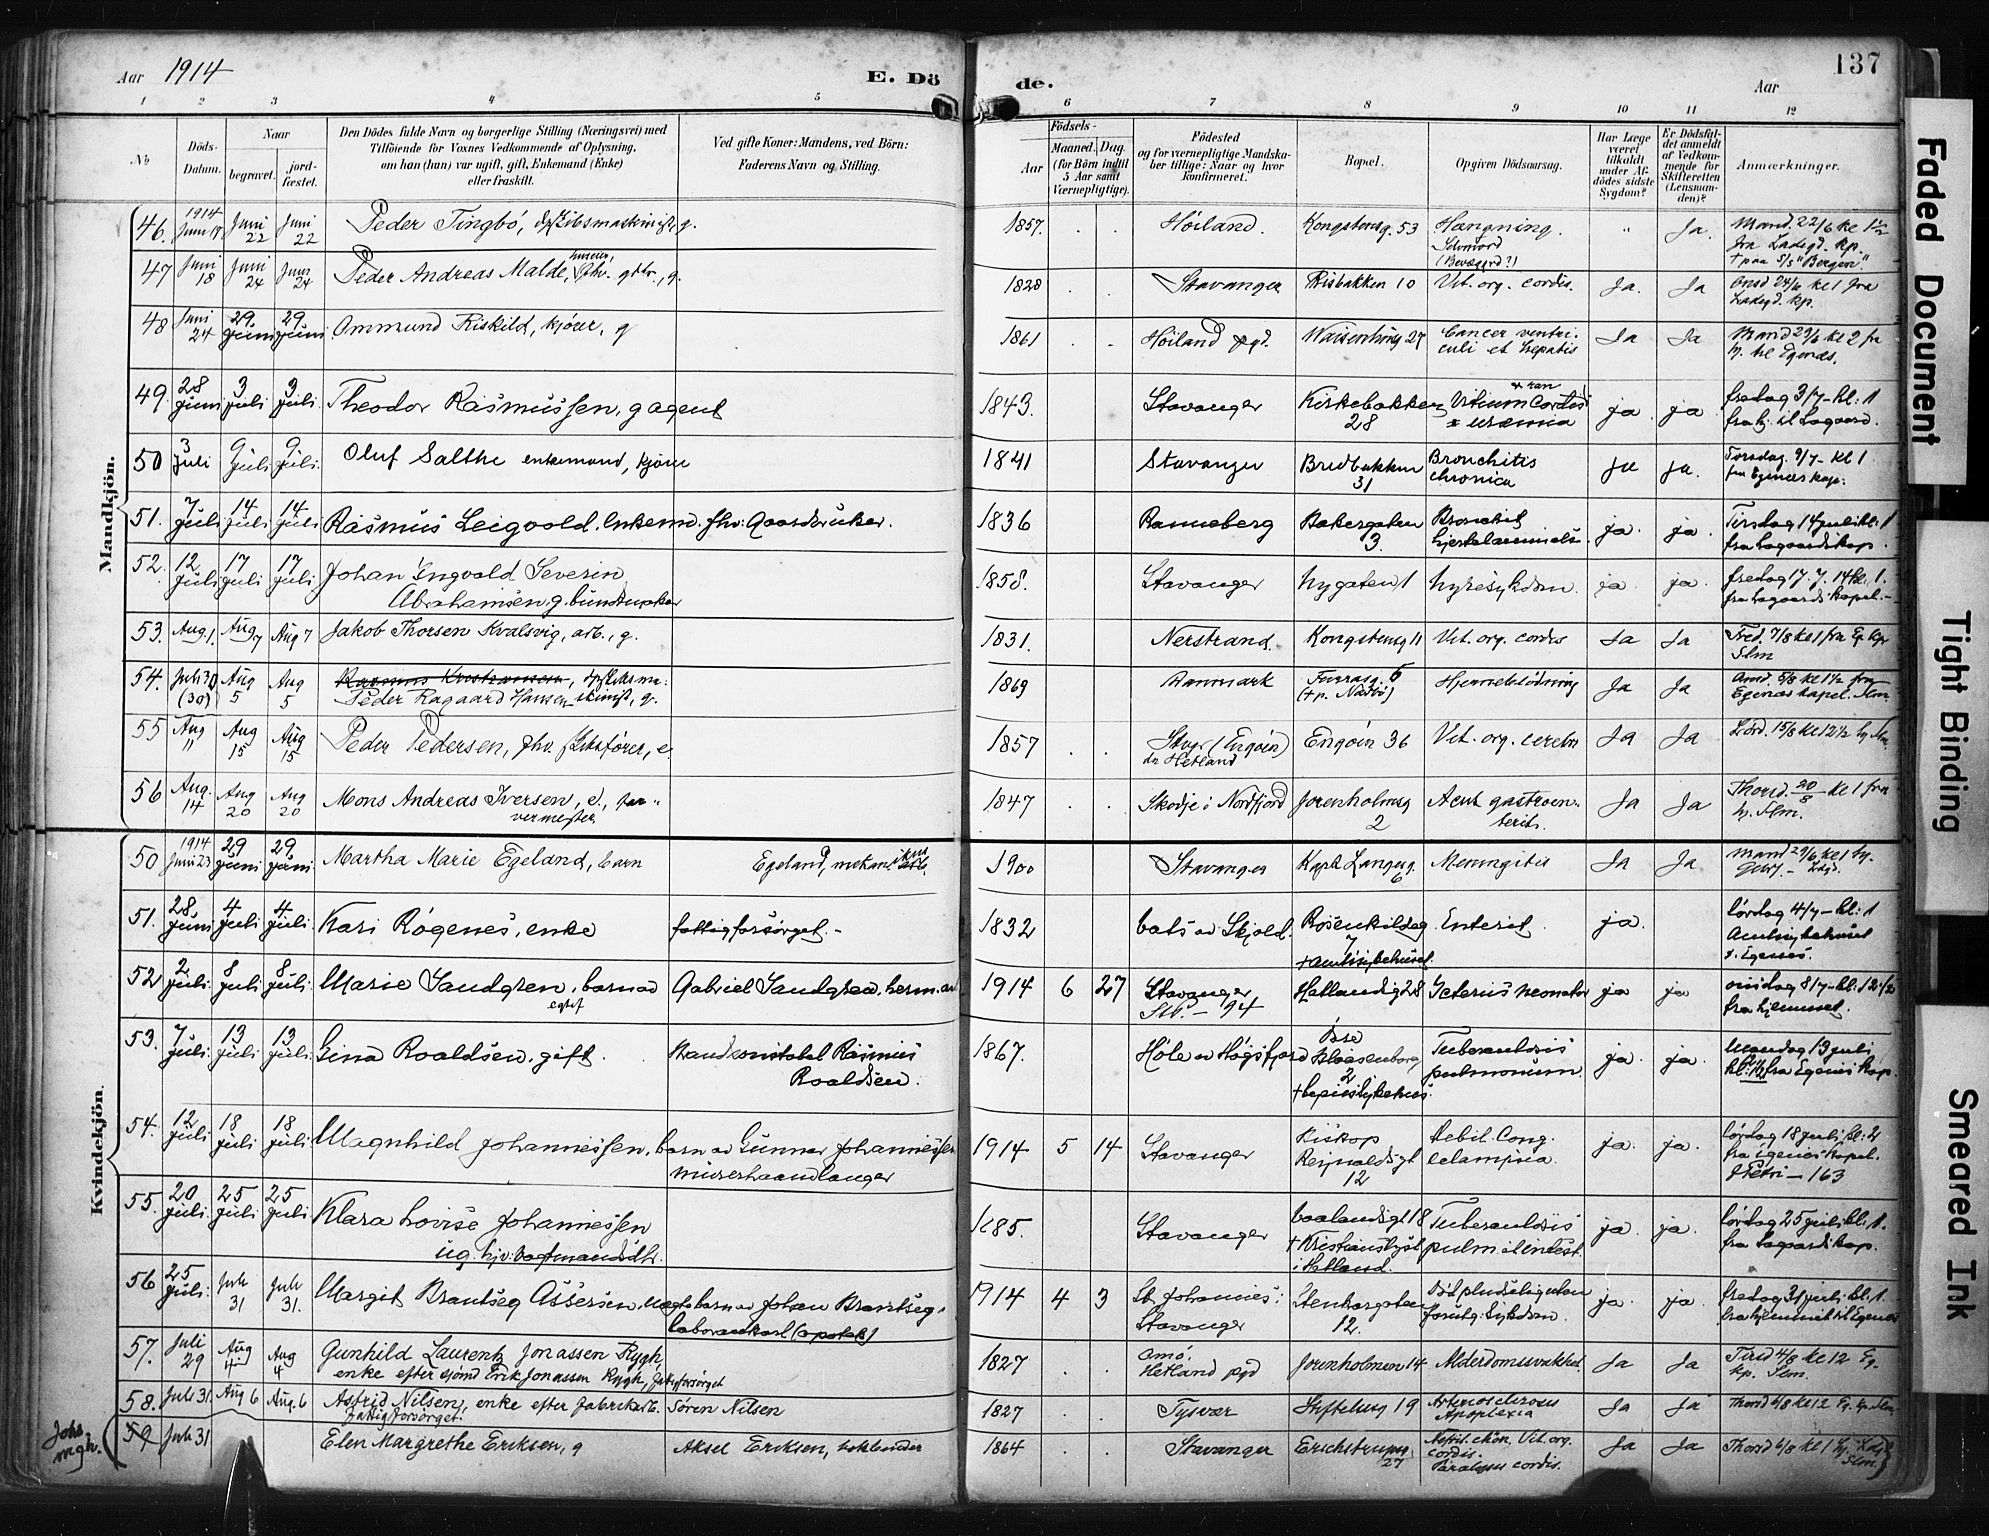 Aar 1914 E. Dö
de. Aar 137
1 2 3 4 5 6 7 8 9 10 11 12
No
Döds-
Datum.
Naar
begravet.
jord-
fæstet.
Den Dödes fulde Navn og borgerlige Stilling (Næringsvei) med
Tilföiende for Voxnes Vedkommende af Oplysning,
om han (hun) var ugift, gift, Enkemand (Enke)
eller fraskilt.
Ved gifte Koner: Mandens, ved Börn:
Faderens Navn og Stilling.
Födsels-
Aar
Maaned. Dag.
(for Börn indtil
5 Aar samt
Værnepligtige).
Födested
og for værnepligtige Mandska-
ber tillige: Naar og hvor
konfirmeret.
Bopæl.
Opgiven Dödsaarsag.
Har Læge
været
tilkaldt
under Af-
dödes sidste
Sygdom?
Er Dödsfal-
det anmeldt
af Vedkom-
mende for
Skifteretten
(Lensman-
den)?
Anmærkninger.
Mandkjön.
46. 1914 Juni 22 Juni 22 Peder Tingbó, g. 1857. Høiland. Kongsteinsg. 53 Hængning. Selvmord " Ja. Mand. 22/6 kl 1½ fra Ladegd. kp. + paa 5/5 "Bergen".
47 Juni 18 Juni 24 Juni 24 Peder Andreas Malde, fhv. g. 1828 Stavanger Risbakken 10 Vit. org. cordis. Ja. Ja Onsd 24/6 kl 1 fra Ladegd. kp.
48 Juni 24 29 Juni 29 Juni Ommund Riskild, kjörer, g 1861 Höiland pgd. Waisenhusg 27 Cancer ventri-
culi et hepatis Ja Ja Mand 29/6 kl 2 fra hj. til Egenæs.
49. 28 Juni 3 Juli 3 Juli. Theodor Rasmussen, g agent 1843. Stavanger Kirkebakken 28 Vitium Cordis uræmia ja ja fredag 3/7 - kl: 1 fra hj. til Lagaard.
50 3 Juli 9 Juli 9 Juli. Oluf Salthe enkemand, kjörer 1841 Stavanger Bredbakken 31 Bronchitis chronica ja ja. Torsdag. 9/7 - kl 1 fra Egenes kap.
51. 7 Juli 14 Juli 14 Juli Rasmus Leigvold. Enkem. fhv: Gaardbruker. 1836 Ranneberg Bakergaten 3. ja. ja. Tirsdag 14 juli kl: 1 fra Lagaards kap.
52. 12 Juli 17 Juli 17 Juli Johan Ingvald Severin
Abrahamsen. g. buntmaker 1858. Stavanger Nygaten 1 Nyresykdom. ja. ja. fredag 17. 7. 14 kl. 1. fra Lagaards kapel. -
53. Aug. 1. Aug 7 Aug 7 Jakob Thorsen Kvalsvig, arb., g. 1831. Nerstrand. Kongsteinsg 11 Vit. org. cordis Ja Ja Fred. 7/8 kl 1 fra Eg. kp Slm
54. Juli 30 (30) Aug 5 Aug 5 Rasmus Kristiansen,
Peder Ragaard Hansen g. 1869 Danmark 6 Hjerneblödning Ja Ja Onsd. 5/8 kl 1½ fra Egenæs kapel. Slm.
55 Aug 11 Aug 15 Aug 15 Peder Pedersen, fhv. e. 1857 Stvgr (Engöin) Hetland Engöin 36 Vit. org. cerebri Ja Ja Lørd. 15/8 kl 12½ hj. Slm.
56 Aug. 14 Aug 20 Aug 20 Mons Andreas Iversen, e., gar-
vermester 1847 Skodje i Nordfjord Jorenholmsg 2 Acut gastroen-
terit. Ja Ja Thorsd. 20/8 kl 1 fra hj. Slm.
Kvindekjön
50 1914 Juni 23 29 Juni 29 Juni Martha Marie Egeland, barn Egeland, mekan. 1900 Stavanger Kapt. Langesg. 6 Meningitis Ja Ja Mand 29/6 kl 1 hj.
51. 28 Juni 4 Juli 4 Juli. Kari Rögenes, enke fattigforsörget. - 1832 Vats av Skjold. Rosenkildeg 7 + Amtssykehuset. Enterit. ja. lördag 4/7 - kl: 1 Amtssykehuset t. Egenes.
52 2 Juli. 8 Juli 8 Juli. Marie Sandgren, barn av Gabriel Sandgren, herm. arb
egtef 1914 6 27 Stavanger
St. - 94 Hetlandsg 28 Icterus neonator ja ja onsdag 8/7 - kl: 12 1/2 fra hjemmet.
53. 7 Juli. 13 Juli 13 Juli Gina Roaldsen, gift. Havdkonstabel Rasmus
Roaldsen. 1867. Höle av Högsfjord Øvre Blaasenborg 2 Tuberculosis
pulmonum. ja. ja. Mandag 13 juli fra Egenes kap.
54. 12 Juli 18 Juli 18 Juli Magnhild Johannessen, barn av Gunnar Johannessen
murerhaandlanger 1914 5 14 Stavanger Biskop
Reinaldsgt
12 Debil. Cong.
eclampsia. ja. ja. lördag 18 juli kl: 2 fra Egenes kapel. St Petri - 163
55. 20 Juli. 25 Juli 25 Juli Klara Lovise Johannessen
ug. 1885. Stavanger Vaalandsgt 18 + Kristianslyst i Hetland. Tuberculosis
pulm et intest. ja. ja. lördag 25 juli kl: 1. fra Lagaards kap.
56 25 Juli. Juli 31 Juli 31. Margit Brantseg Assersen, uægte barn av Johan Brantseg.
laborankarl (apotek) 1914 4 3 St. Johannes:
Stavanger Stenhaggaten
12. Död pludselig uten
foreutg: Sykdom. ja. ja. fredag 31 juli kl: 1. - fra hjemmet til Egenes
57. Juli 29 Aug 4 Aug 4 Gunhild Laurentz Jonassen Rygh,
enke efter sjömd Erik Jonassen Rygh, fattigforsörget 1827 Amö,
Hetland pgd Jorenholmen 14 Alderdomssvakhet. Ja Ja Tirsd 4/8 kl 12 Eg.
kp. Slm.
58. Juli 31. Aug 6 Aug. 6 Astrid Nilsen, enke efter fabrikarb. Sören Nilsen
fattigforsörget. 1827 Tysvær Stiftelsesg 19 Arteriosclerosis
Apoplexia Ja Ja Thorsd 6/8 kl 12 Eg. kp. Slm
Johs
mgh. 59 Juli 31 Elen Margrethe Eriksen, g Aksel Eriksen, 1864 Stavanger Erichstrupsg
27 Vit. org.
cordis.
Paralysis cordis. Ja Ja Thorsd 6/8 kl 1 hj.
Slm.
Faded Document
Tight Binding
Smeared Ink